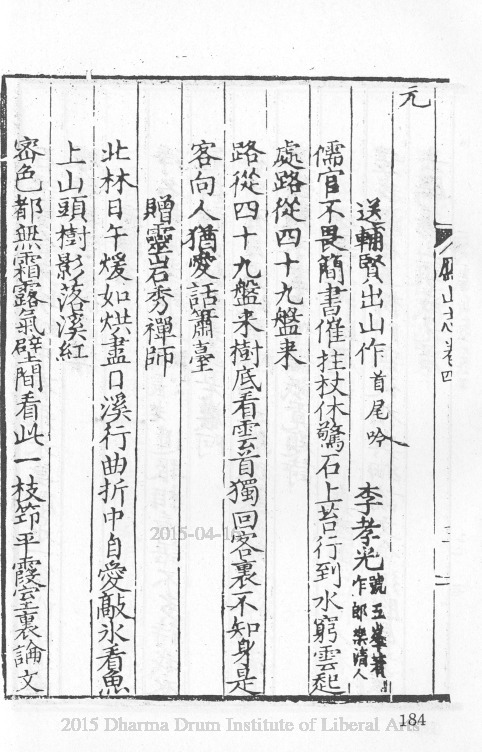 鴈山志卷四
元
送輔賢出山作 首尾吟 李孝光 號五峯
作郎樂清人
儒官不畏簡書催拄杖休驚石上苔行到水窮雲起
處路從四十九盤来
路從四十九盤来樹底看雲首獨回客裏不知身是
客向人猶愛話簫臺
贈靈岩秀禪師
北林日午煖如烘盡日溪行曲折中自愛敲氷看魚
上山頭樹影落溪紅
密色都無霜露氣壁間看此一枝笻平霞室裏論文
2015-04-16
184
2015 Dharma Drum Institute of Liberal Arts